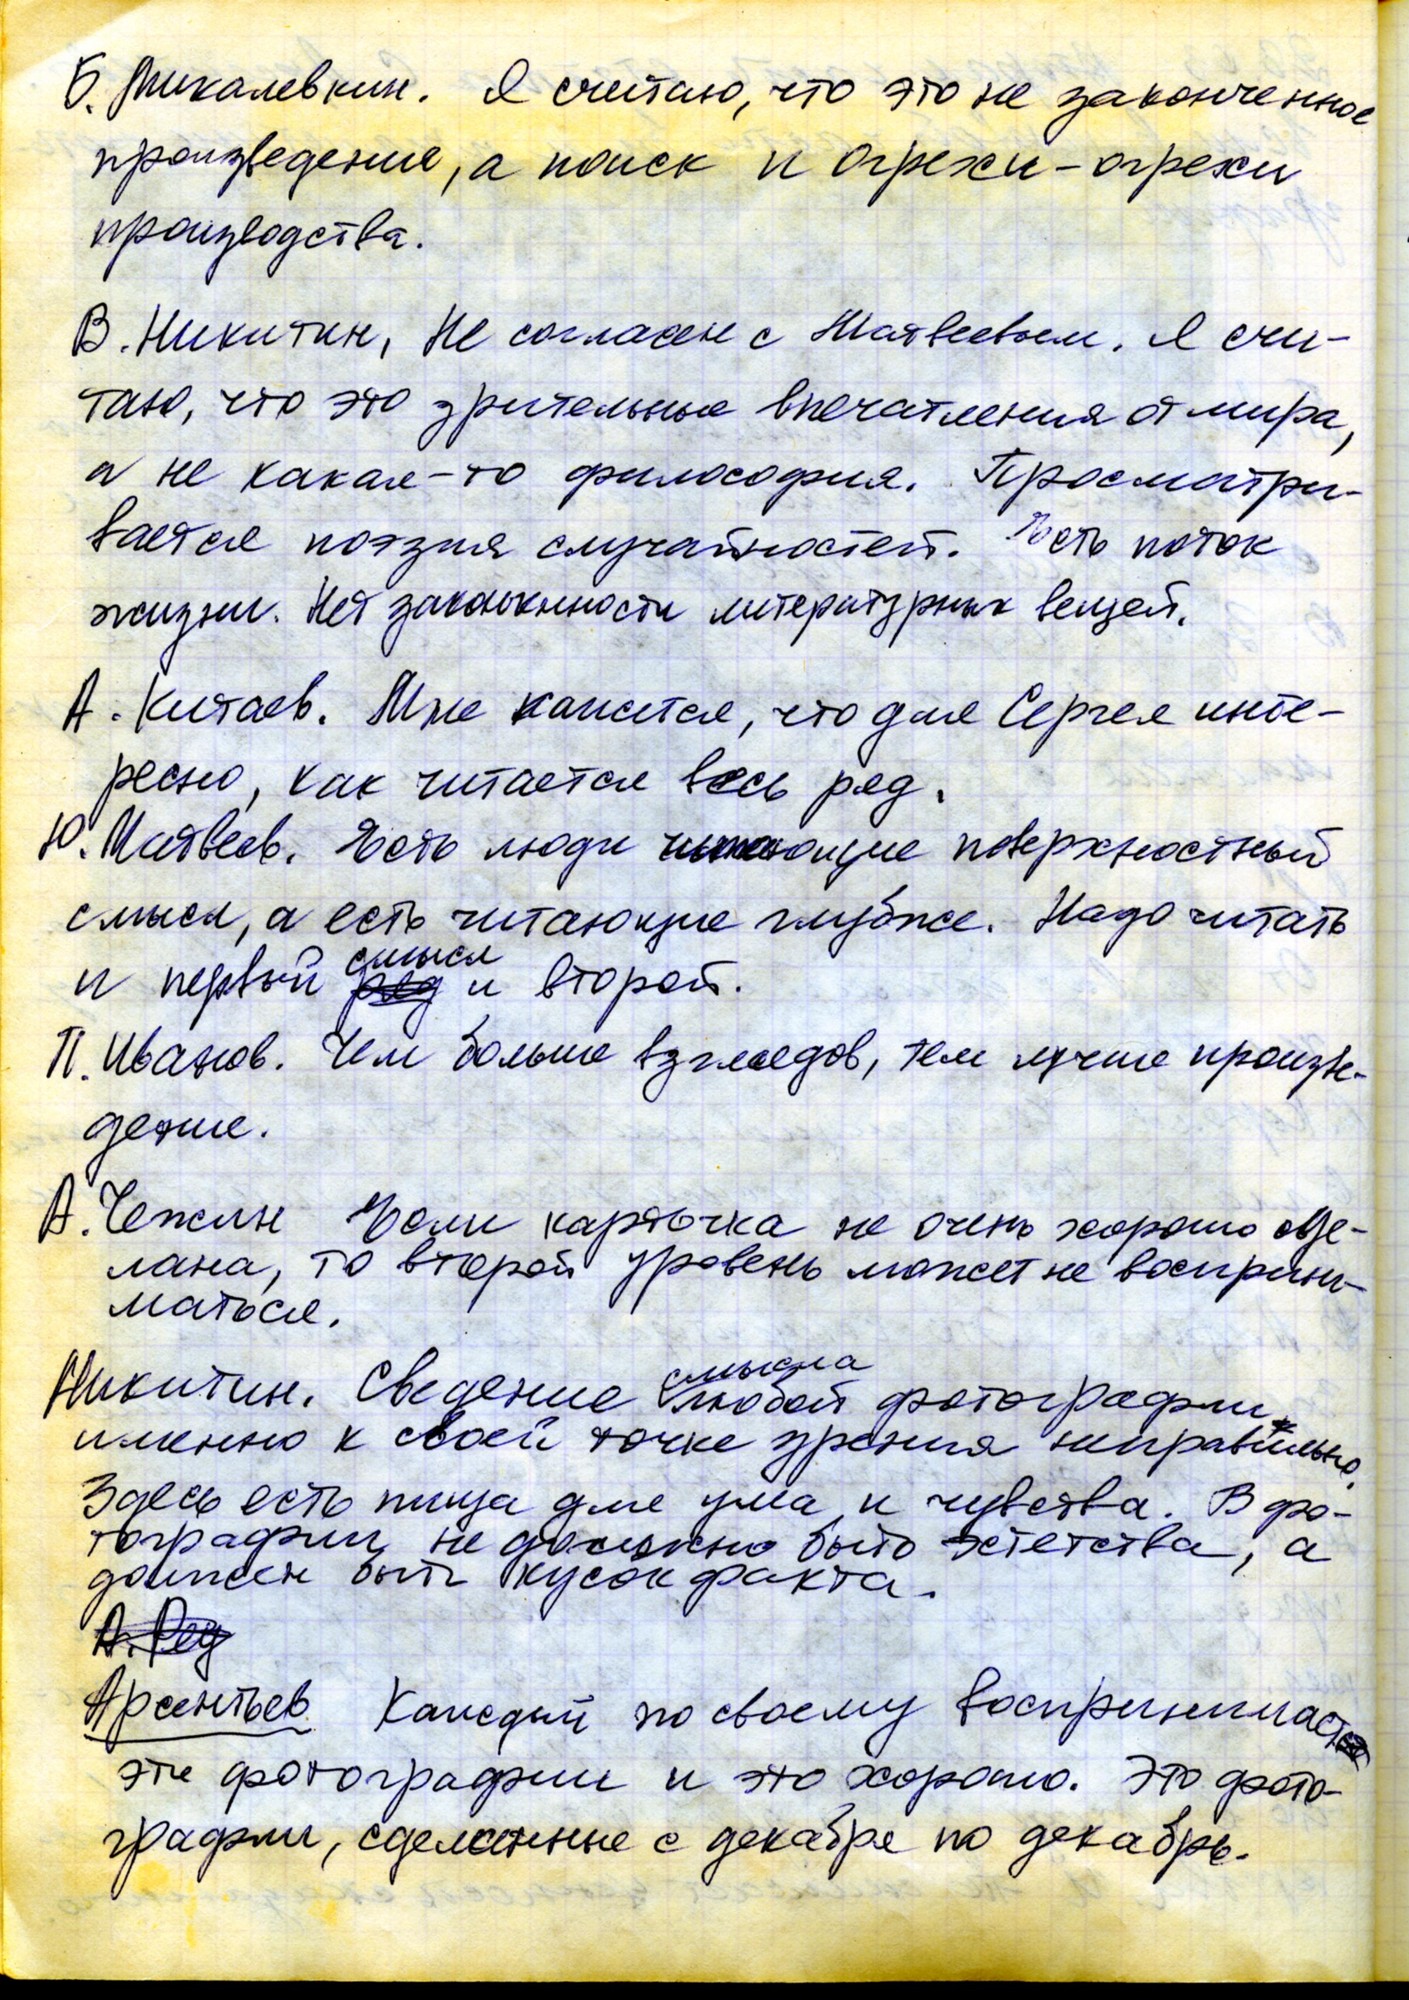 Б. Михалевкин. Я считаю, что это не законченное
произведение, а поиск и огрехи – огрехи
производства.
В. Никитин. Не согласен с Матвеевым. Я счи-
таю, что это зрительные впечатления от мира,
а не какая-то философия. Просматри-
вается поэзия случайностей. Есть поток
жизни. Нет законченности литературных вещей.
А. Китаев. Мне кажется, что для Сергея инте-
ресно, как читается весь ряд.
Ю. Матвеев. Есть люди читающие поверхностный
смысл, а есть читающие глубже. Надо читать
и первый смысл и второй.
П. Иванов. Чем больше взглядов, тем лучше произве-
дение.
А. Чежин Если карточка не очень хорошо сде-
лана, то второй уровень может не восприни-
маться.
Никитин. Сведение смысла любой фотографии
именно к своей точке зрения неправильно.
Здесь есть пища для ума и чувства. В фо-
тографии не должно быть эстетства, а
должен быть кусок факта.
А. Ред
Арсентьев Каждый по своему воспринимает
эти фотографии и это хорошо. Это фото-
графии, сделанные с декабря по декабрь.